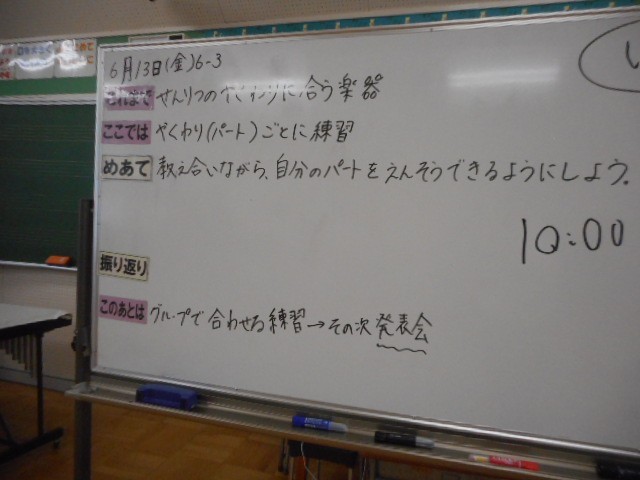 6月13日(金)6-3
これまで せんりつのやくわりに合う楽器
ここでは やくわり(パート)ごとに練習
めあて 教え合いながら、自分のパートをえんそうできるようにしよう。
10:00
振り返り
このあとは グループで合わせる練習→その次発表会